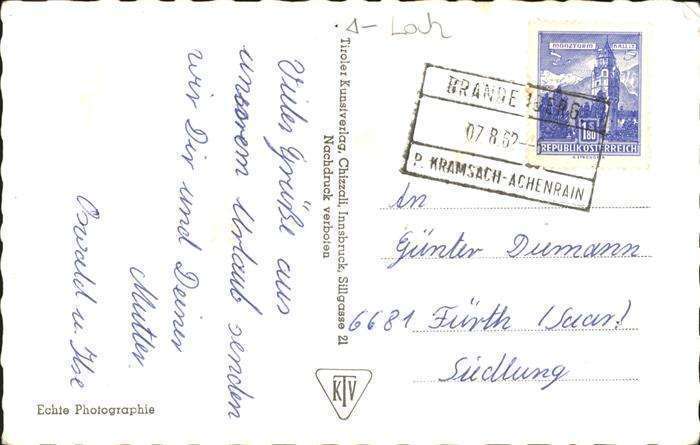 △- Loch
Viele Grüße aus
unserem Urlaub senden
wir Dir und Deiner
Mutter.
Oswald u. Ilse
Echte Photographie
Tiroler Kunstverlag, Chizzali, Innsbruck, Sillgasse 21
Nachdruck verboten
KTV
MÜNZTURM HALL i. T.
1 S
1.80
REPUBLIK ÖSTERREICH
07.8.62
P. KRAMSACH-ACHENRAIN
An
Günter Diemann
6681 Fürth (Saar)
Siedlung